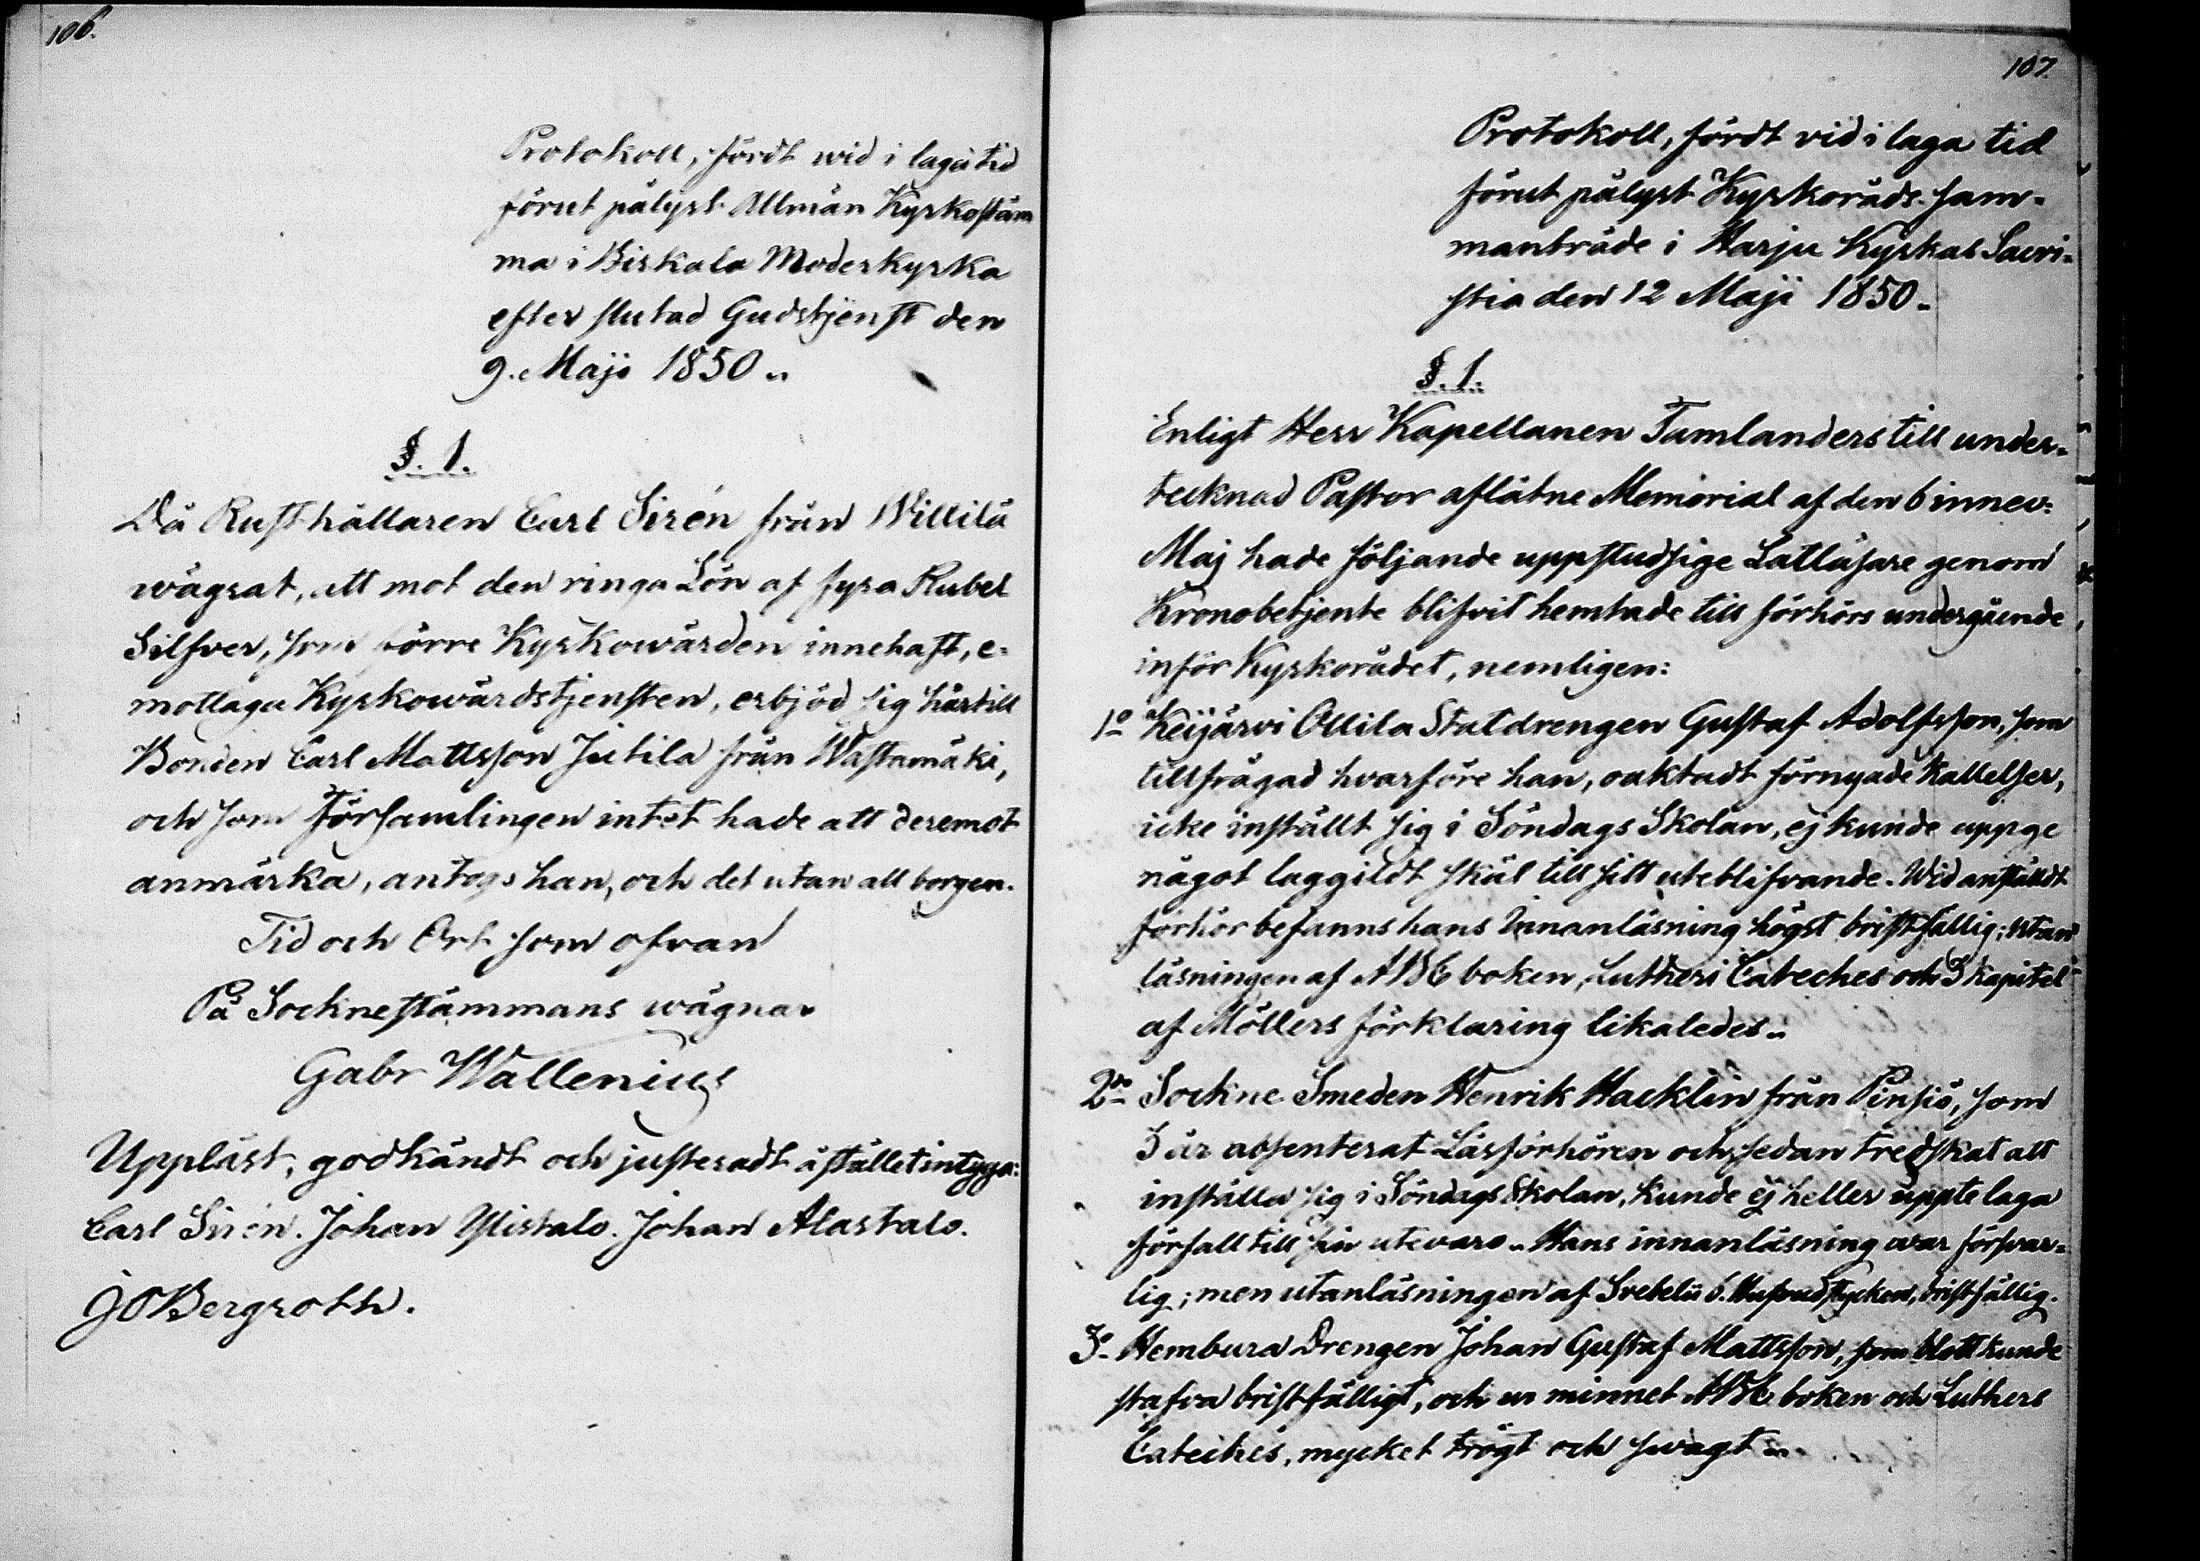 106.
Protokoll, fördt wid i laga tid
förut pålyst Allmän Kyrkostäm
ma i Birkala Moderkyrka
efter slutad Gudstjenst den
9. Maji 1850.
§. 1.
Då Rusthållaren Carl Sirén från Willilä
wägrat, att mot den ringa Lön af fyra Rubel
Silfver, som förre Kyrkowärden innehaft, e-
mottaga Kyrkowärdstjensten, erbjöd sig härtill
Bonden Carl Mattsson Jutila från Wastamäki,
och som Församlingen intet hade att deremot
anmärka, antogs han, och det utan all borgen.
Tid och Ort som ofvan
På Socknestämmans wägnar
Gabr Wallenius
Uppläst, godkändt och justeradt å stället intyga:
Carl Sirén. Johan Ylistalo. Johan Alastalo.
J O Bergroth.
107.
Protokoll, fördt vid i laga tid
förut pålyst Kyrkoråds sam-
manträde i Harju Kyrkas Sacri-
stia den 12 Maji 1850.
§. 1.
Enligt Herr Kapellanen Tamlanders till under-
tecknad Pastor aflåtne Memorial af den 6 innev:
Maj hade följande uppstudsige Latläsare genom
Kronobetjente blifvit hemtade till förhörs undergående
inför Kyrkorådet, nemligen:
1o af Keijärvi Ollila Statdrengen Gustaf Adolfsson, som
tillfrågad hvarföre han, oaktadt förnyade Kallelser,
icke inställt sig i Söndags Skolan, ej kunde uppge
något laggildt skäl till sitt uteblifvande. Wid anställdt
förhör befanns hans Innanläsning högst bristfällig; utan-
läsningen af ABC boken, Lutheri Cateches och 3 kapitel
af Möllers förklaring likaledes.
2o Sockne Smeden Henrik Hacklin från Pinsiö, som
3 år absenterat Läsförhören och sedan tredskat att
inställa sig i Söndags Skolan, kunde ej heller uppte laga
förfall till sin utevaro. Hans innanläsning war försvar-
lig; men utanläsningen af Svebelii 6. Hufvudstycken, bristfällig.
3o Hembura Drengen Johan Gustaf Mattsson, som blott kunde
stafva bristfälligt, och ur minnet ABC boken och Luthers
Cateches, mycket trögt och swagt.